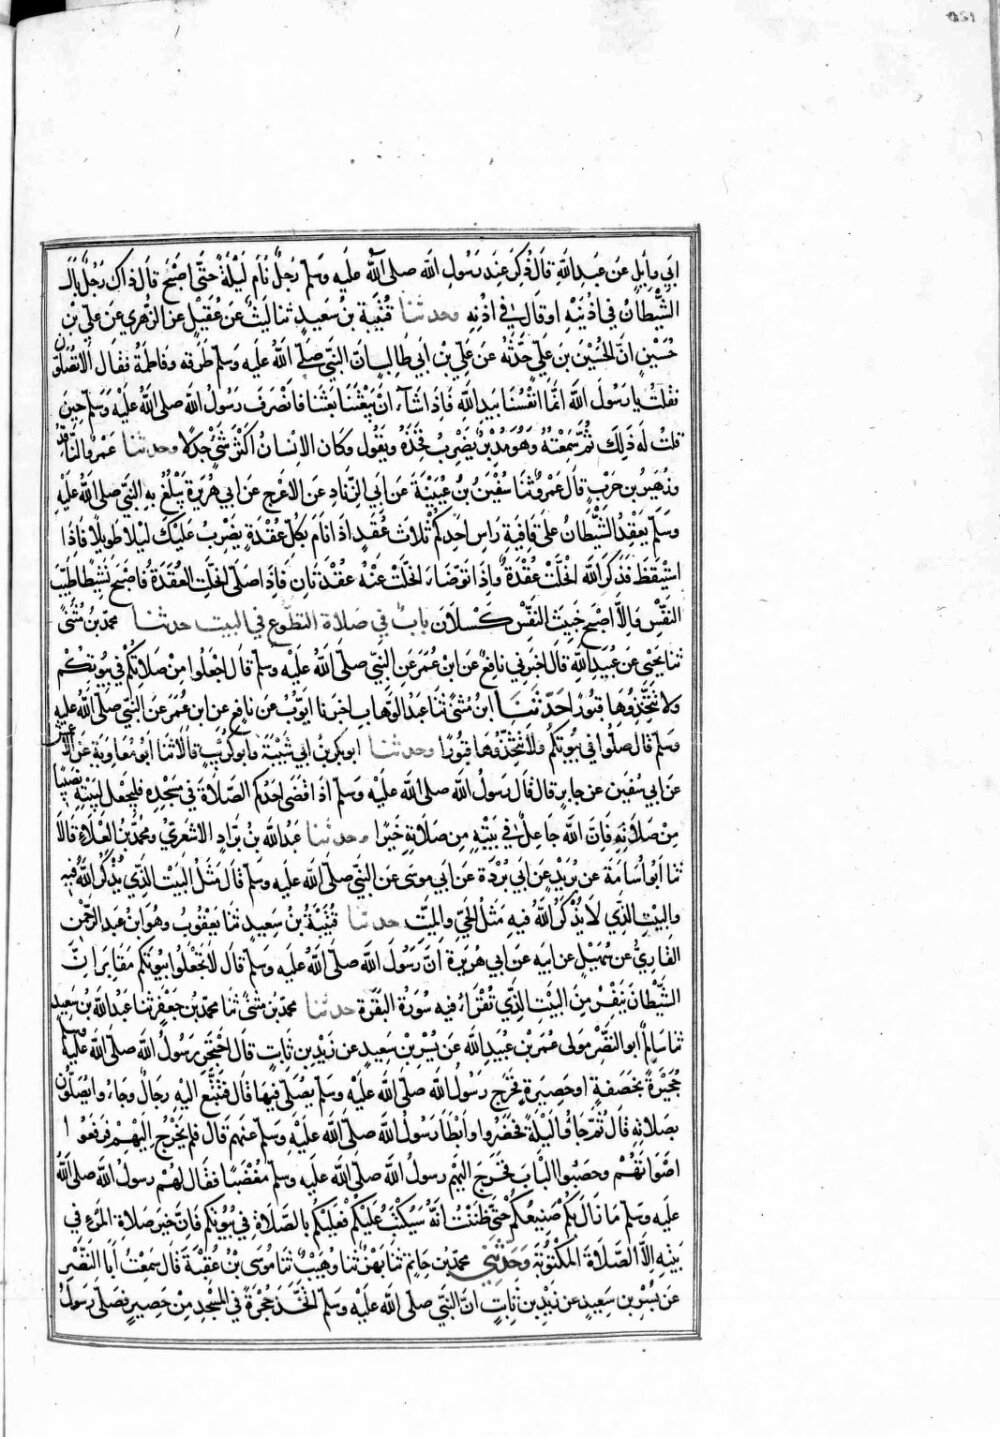 ابي وايل عن عبد الله قال ذكر عند رسول الله صلى الله عليه وسلم رجل نام ليلة حتى اصبح قال ذاك رجل بال
الشيطان في اذنيه او قال في اذنه وحدثنا قتيبة بن سعيد ثنا ليث عن عقيل عن الزهري عن علي بن
حسين ان الحسين بن علي حدثه عن علي بن ابي طالب ان النبي صلى الله عليه وسلم طرقه وفاطمة فقال الا تصلون
فقلت يا رسول الله انما انفسنا بيد الله فاذا شاء ان يبعثنا بعثنا فانصرف رسول الله صلى الله عليه وسلم حين
قلت له ذلك ثم سمعته وهو مدبر يضرب فخذه ويقول وكان الانسان اكثر شئ جدلا وحدثنا عمرو الناقد
وزهير بن حرب قال عمرو ثنا سفين بن عيينة عن ابي الزناد عن الاعرج عن ابي هريرة يبلغ به النبي صلى الله عليه
وسلم يعقد الشيطان على قافية راس احدكم ثلاث عقد اذا نام بكل عقدة يضرب عليك ليلا طويلا فاذا
استيقظ فذكر الله انحلت عقدة واذا توضاء انحلت عنه عقدتان فاذا صلى انحلت العقدة فاصبح نشيطا طيب
النفس والا اصبح خبيث النفس كسلان باب في صلاة التطوع في البيت حدثنا محمد بن مثنى
ثنا يحيى عن عبيد الله قال اخبرني نافع عن ابن عمر عن النبي صلى الله عليه وسلم قال اجعلوا من صلاتكم في بيوتكم
ولا تتخذوها قبورا حدثنا ابن مثنى ثنا عبد الوهاب اخبرنا ايوب عن نافع عن ابن عمر عن النبي صلى الله عليه
وسلم قال صلوا في بيوتكم ولا تتخذوها قبورا وحدثنا ابو بكر بن ابي شيبة وابو كريب قالا ثنا ابو معاوية عن الاعمش
عن ابي سفين عن جابر قال قال رسول الله صلى الله عليه وسلم اذا قضى احدكم الصلاة في مسجده فليجعل لبيته نصيبا
من صلاته فان الله جاعل في بيته من صلاته خيرا وحدثنا عبد الله بن براد الاشعري ومحمد بن العلاء قالا
ثنا ابو أسامة عن بريد عن ابي بردة عن ابي موسى عن النبي صلى الله عليه وسلم قال مثل البيت الذي يذكر الله فيه
والبيت الذي لا يذكر الله فيه مثل الحي والميت حدثنا قتيبة بن سعيد ثنا يعقوب وهو ابن عبد الرحمن
القاري عن سهيل عن ابيه عن ابي هريرة ان رسول الله صلى الله عليه وسلم قال لا تجعلوا بيوتكم مقابر ان
الشيطان ينفر من البيت الذي تقراء فيه سورة البقرة حدثنا محمد بن مثنى ثنا محمد بن جعفر ثنا عبد الله بن سعيد
ثنا سالم ابو النضر مولى عمر بن عبيد الله عن بسر بن سعيد عن زيد بن ثابت قال احتجر رسول الله صلى الله عليه وسلم
حجيرة بخصفة او حصير فخرج رسول الله صلى الله عليه وسلم يصلي فيها قال فتتبع اليه رجال وجاءوا يصلون
بصلاته قال ثم جاؤا ليلة فحضروا وابطأ رسول الله صلى الله عليه وسلم عنهم قال فلم يخرج اليهم فرفعوا
اصواتهم وحصبوا الباب فخرج اليهم رسول الله صلى الله عليه وسلم مغضبا فقال لهم رسول الله صلى الله
عليه وسلم ما زال بكم صنيعكم حتى ظننت انه سيكتب عليكم فعليكم بالصلاة في بيوتكم فان خير صلاة المرء في
بيته الا الصلاة المكتوبة وحدثني محمد بن حاتم ثنا بهز ثنا وهيب ثنا موسى بن عقبة قال سمعت ابا النضر
عن بسر بن سعيد عن زيد بن ثابت ان النبي صلى الله عليه وسلم اتخذ حجرة في المسجد من حصير فصلى رسول